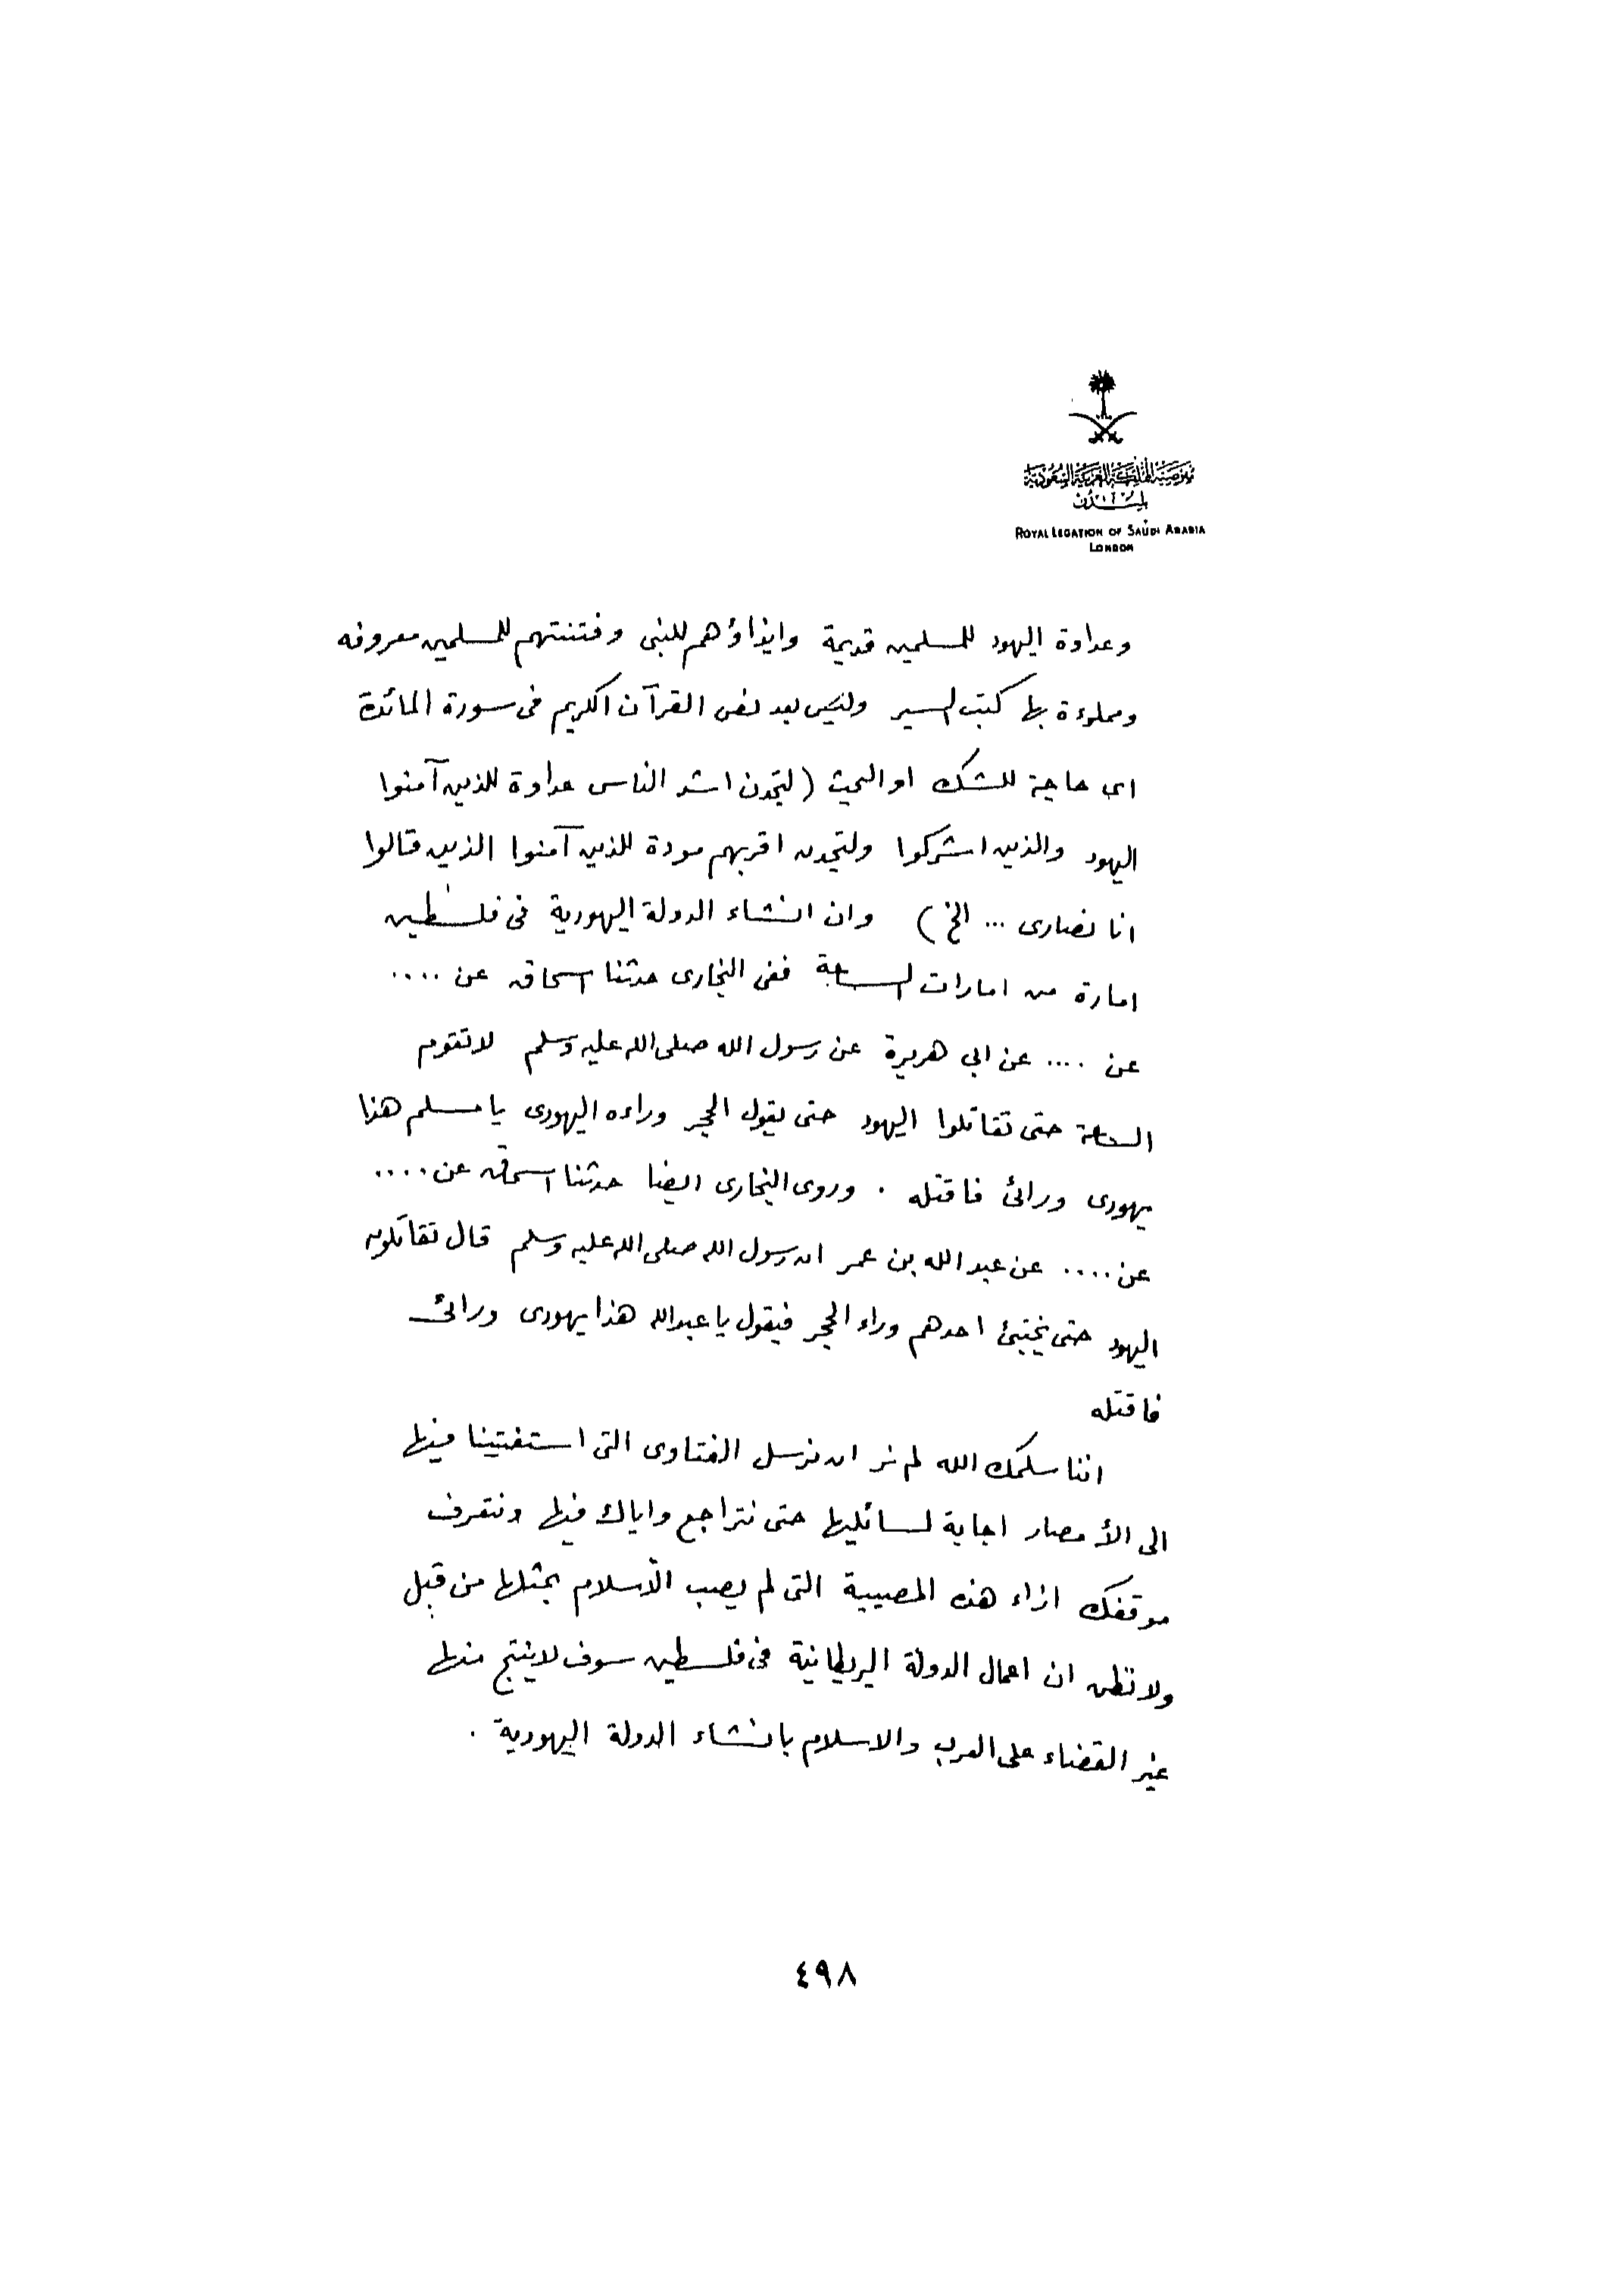 مفوضية المملكة العربية السعودية
بلندن
ROYAL LEGATION OF SAUDI ARABIA
LONDON
وعداوة اليهود للمسلمين قديمة وايذاؤهم للنبى وفتنتهم للمسلمين معروفه
ومملوءة بها كتب السير وليس بعد نص القرآن الكريم فى سورة المائدة
اى حاجة للشك او البحث (لتجدن اشد الناس عداوة للذين آمنوا
اليهود والذين اشركوا ولتجدن اقربهم مودة للذين آمنوا الذين قالوا
انا نصارى ... الخ) وان انشاء الدولة اليهودية فى فلسطين
امارة من امارات الساعة ففى البخارى حدثنا اسحاق عن ....
عن .... عن ابي هريرة عن رسول الله صلى الله عليه وسلم لا تقوم
الساعة حتى تقاتلوا اليهود حتى يقول الحجر وراءه اليهودى يا مسلم هذا
يهودى ورائى فاقتله . وروى البخارى ايضا حدثنا اسحاق عن ....
عن .... عن عبد الله بن عمر ان رسول الله صلى الله عليه وسلم قال تقاتلون
اليهود حتى يختبئ احدهم وراء الحجر فيقول يا عبدالله هذا يهودى ورائى
فاقتله
اننا سلمك الله لم نر ان نرسل الفتاوى التى استفتينا فيها
الى الأمصار اجابة لسائليها حتى نتراجع واياك فيها ونتعرف
موقفك ازاء هذه المصيبة التى لم يصب الأسلام بمثلها من قبل
ولا نظن ان اعمال الدولة البريطانية فى فلسطين سوف لا ينتج منها
غير القضاء على العرب والاسلام بانشاء الدولة اليهودية .
٤٩٨